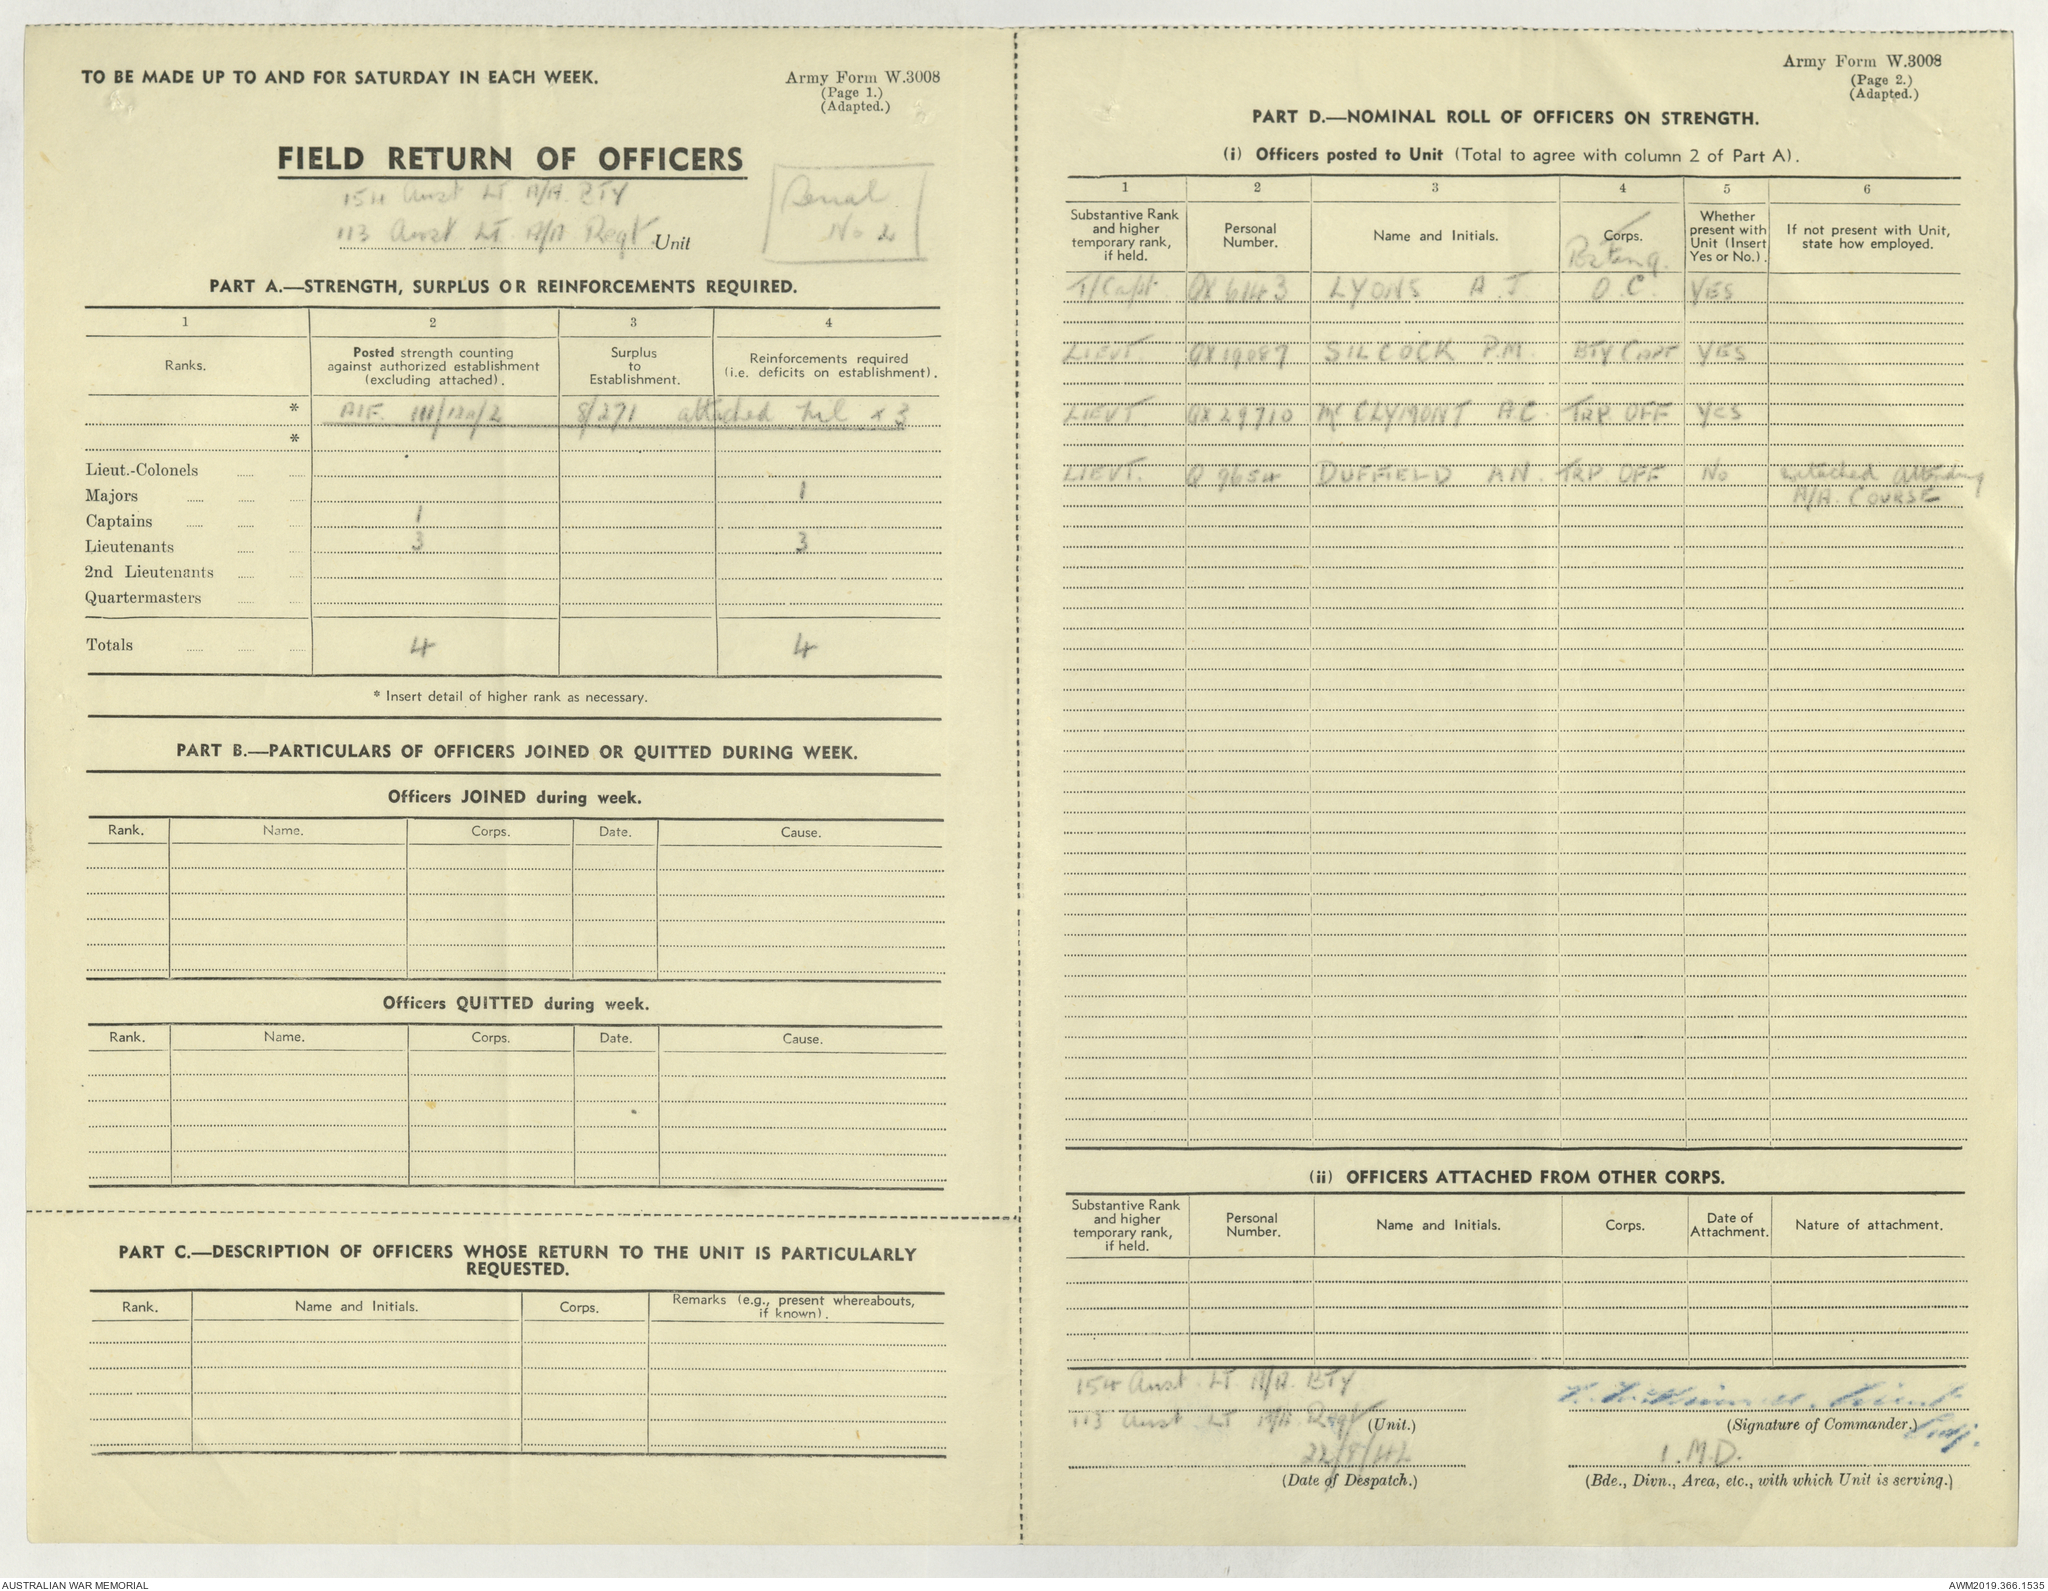 TO BE MADE UP TO AND FOR SATURDAY IN EACH WEEK.
Army Form W.3008
(Page 1.)
(Adapted.)
FIELD RETURN OF OFFICERS
154 Aust LT A/A. BTY
113 Aust LT A/A Regt Unit
Serial
No 2
PART A.—STRENGTH, SURPLUS OR REINFORCEMENTS REQUIRED.
1 2 3 4
Ranks. Posted strength counting against authorized establishment (excluding attached). Surplus to Establishment. Reinforcements required (i.e. deficits on establishment).
* AIF. III/12A/2 8/271 attached nil x 3
*
Lieut.-Colonels
Majors 1
Captains 1
Lieutenants 3 3
2nd Lieutenants
Quartermasters
Totals 4 4
* Insert detail of higher rank as necessary.
PART B.—PARTICULARS OF OFFICERS JOINED OR QUITTED DURING WEEK.
Officers JOINED during week.
Rank. Name. Corps. Date. Cause.
Officers QUITTED during week.
Rank. Name. Corps. Date. Cause.
PART C.—DESCRIPTION OF OFFICERS WHOSE RETURN TO THE UNIT IS PARTICULARLY
REQUESTED.
Rank. Name and Initials. Corps. Remarks (e.g., present whereabouts, if known).
Army Form W.3008
(Page 2.)
(Adapted.)
PART D.—NOMINAL ROLL OF OFFICERS ON STRENGTH.
(i) Officers posted to Unit (Total to agree with column 2 of Part A).
1 2 3 4 5 6
Substantive Rank and higher temporary rank, if held. Personal Number. Name and Initials. Corps. Whether present with Unit (Insert Yes or No.). If not present with Unit, state how employed.
T/Capt. QX6143 LYONS A J. O.C. YES
LIEUT QX19087 SILCOCK P.M BTY CAPT YES
LIEUT QX29710 McCLYMONT A.C. TRP OFF YES
LIEUT. Q 9654 DUFFIELD A N. TRP OFF No attached attending
A/A. COURSE
(ii) OFFICERS ATTACHED FROM OTHER CORPS.
Substantive Rank and higher temporary rank, if held. Personal Number. Name and Initials. Corps. Date of Attachment. Nature of attachment.
154 Aust LT A/A. BTY
113 Aust LT A/A. Regt (Unit.)
Lieut
(Signature of Commander.) Adj.
22/8/42
1. M.D.
(Date of Despatch.)
(Bde., Divn., Area, etc., with which Unit is serving.)
AUSTRALIAN WAR MEMORIAL
AWM2019.366.1535